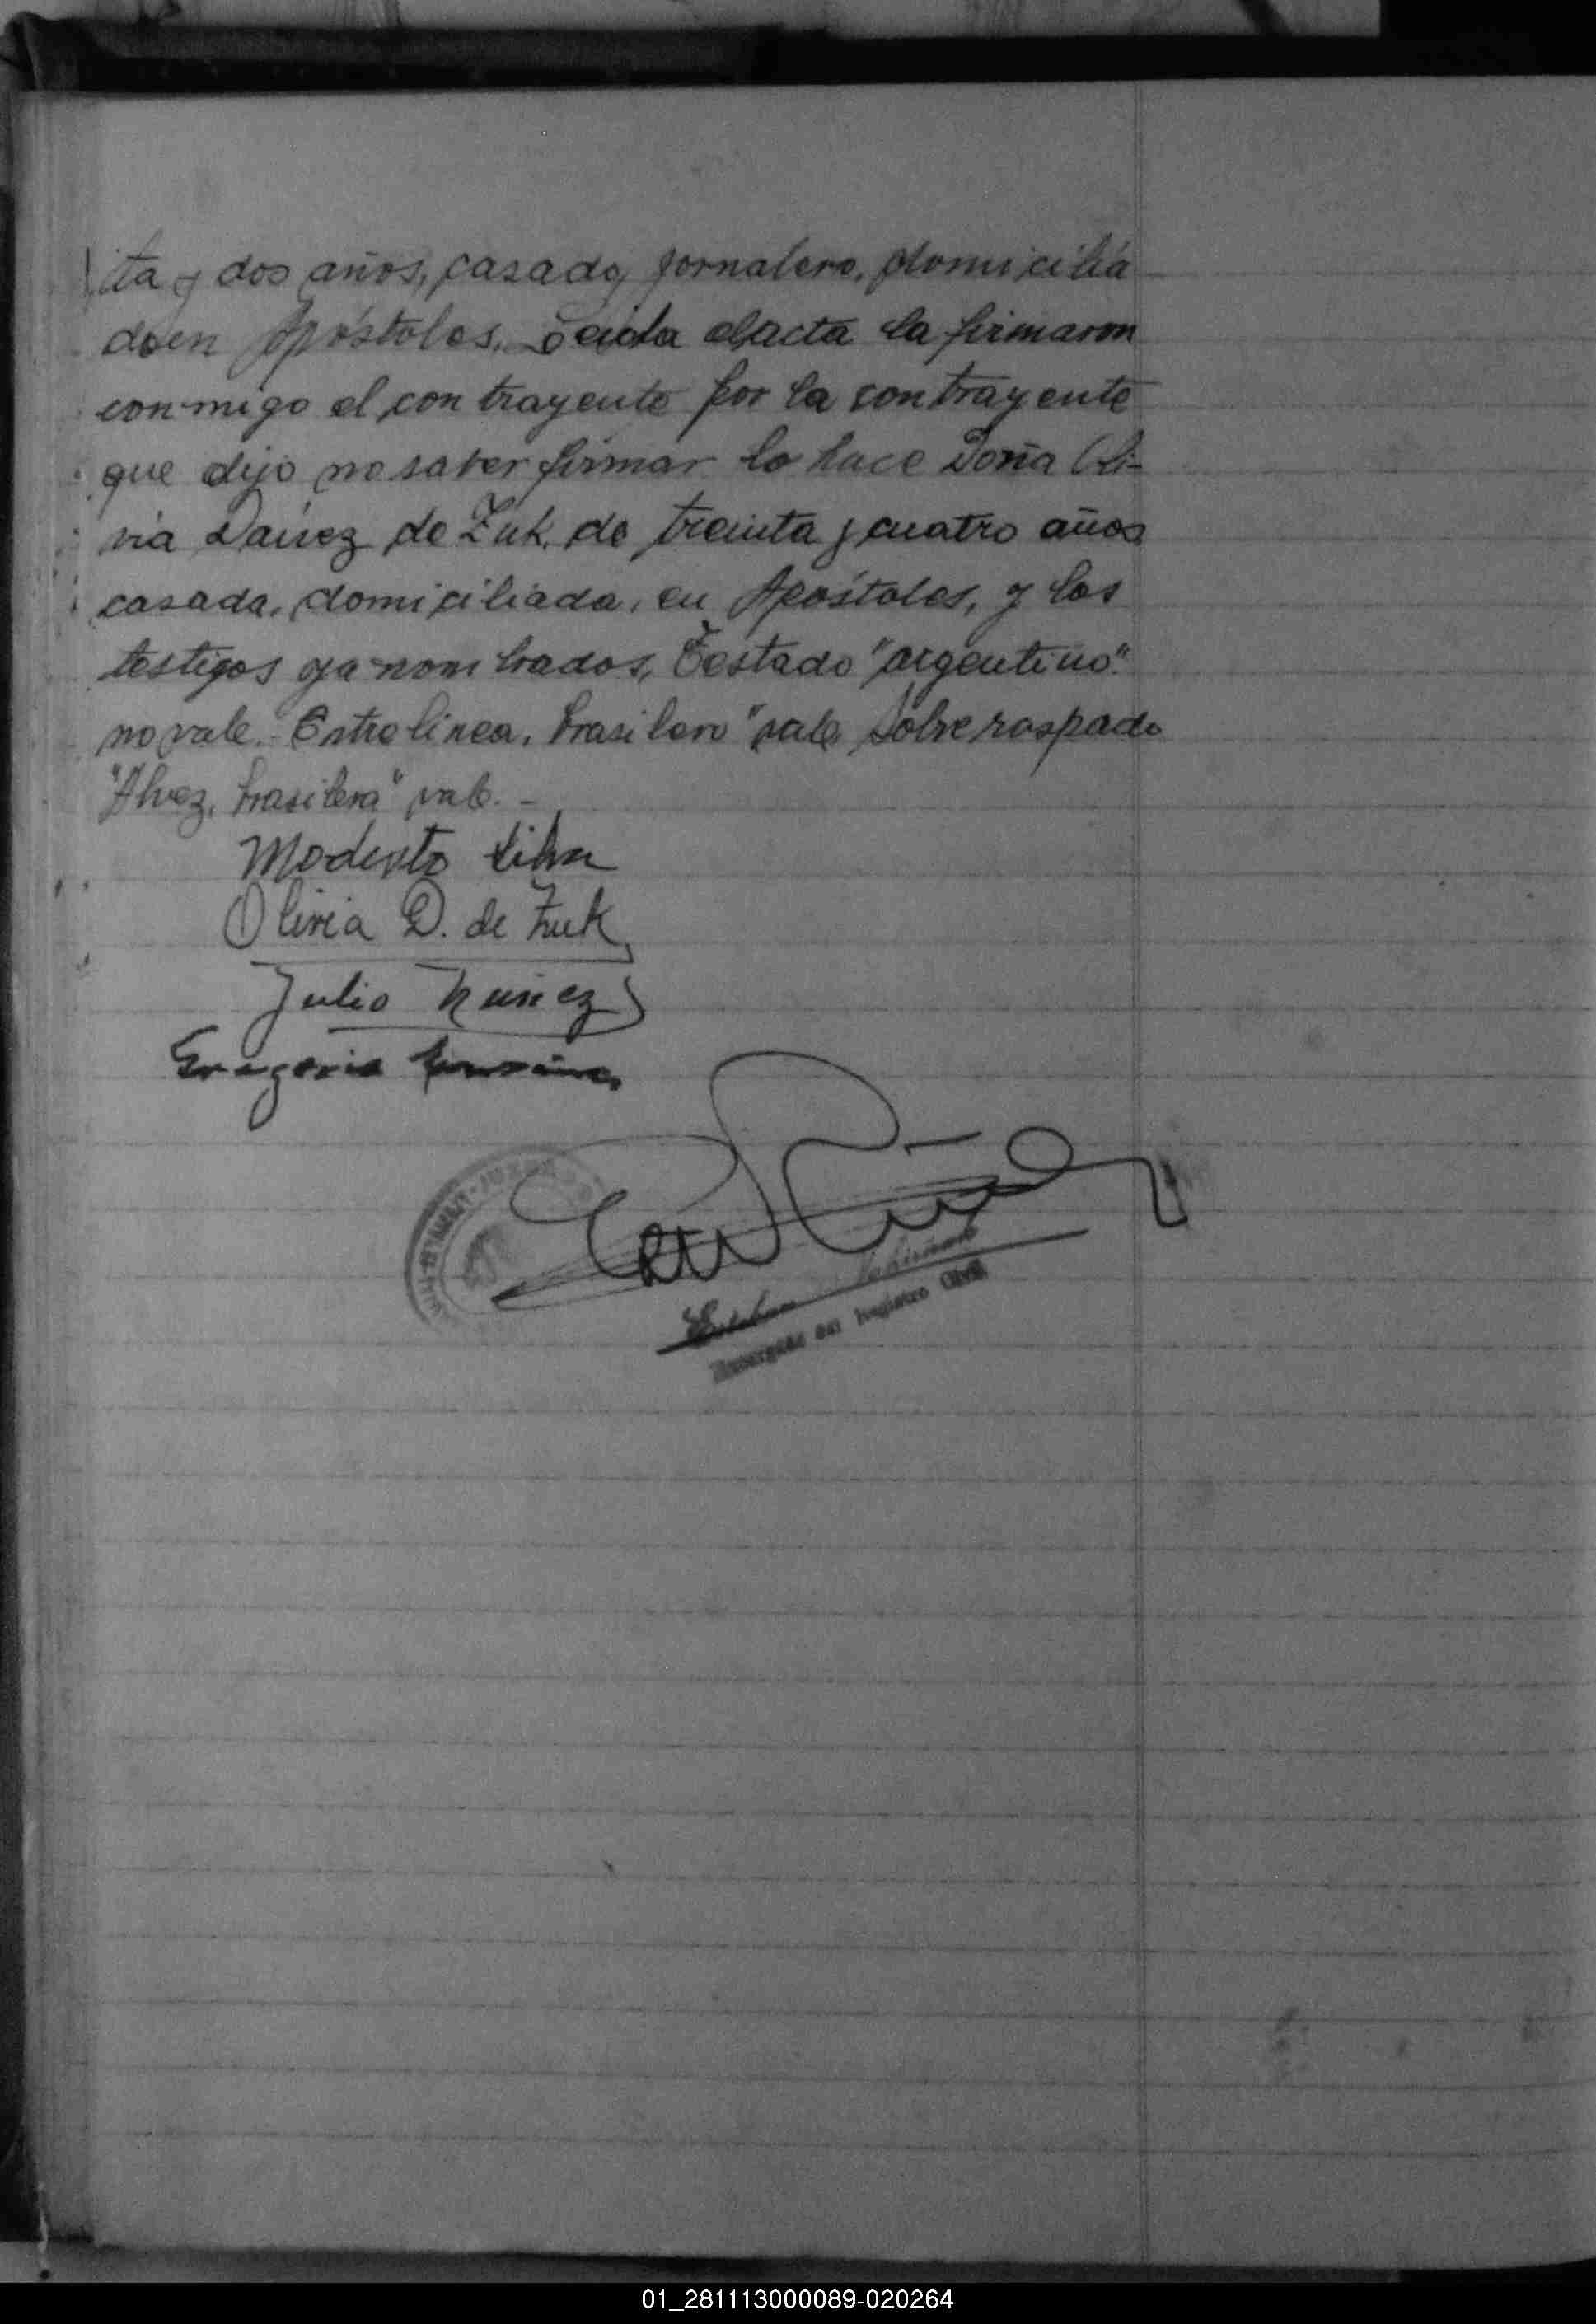 ta y dos años, casado, jornalero, domicilia
do en Apóstoles. Leida el acta la firmaron
conmigo el contrayente por la contrayente
que dijo no saber firmar lo hace Doña Oli-
via Dainez de Zuk, de treinta y cuatro años
casada, domiciliada, en Apóstoles, y los
testigos ya nombrados, Testado "argentino"
no vale.- Entrelinea, brasilero "vale, Sobre raspado
"Alvez, brasilera" vale.-
Modesto Silva
Olivia D. de Zuk
Julio Nuñez
Gregorio
Esteban
Encargado del Registro Civil
01_281113000089-020264